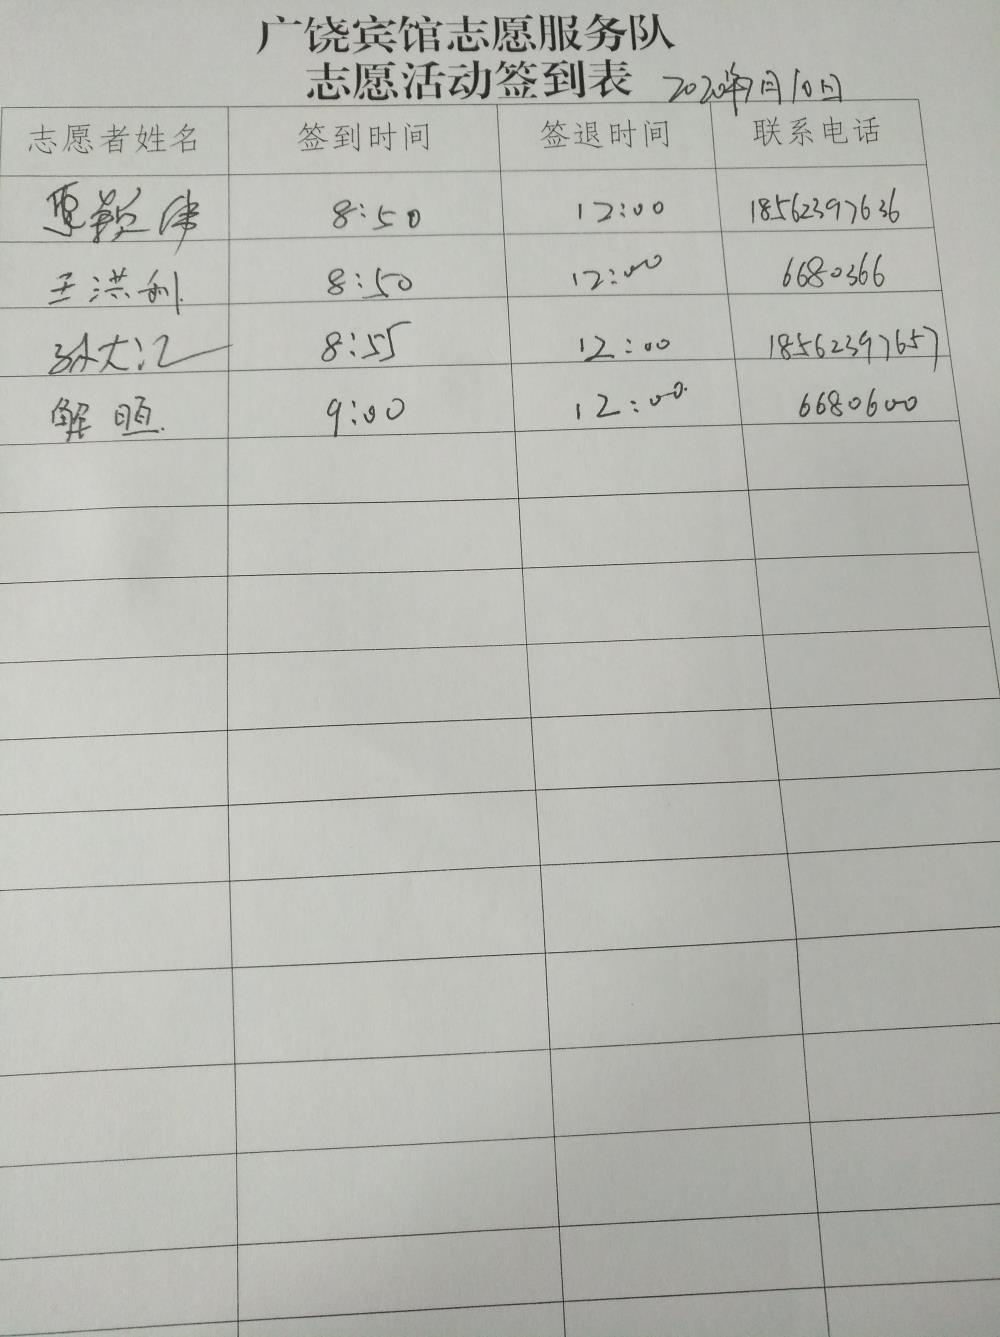 广饶宾馆志愿服务队
志愿活动签到表 2020年7月10日
志愿者姓名 签到时间 签退时间 联系电话
8:50 12:00 18562397636
王洪利 8:50 12:00 6680366
孙大江 8:55 12:00 18562397657
解 9:00 12:00 6680600